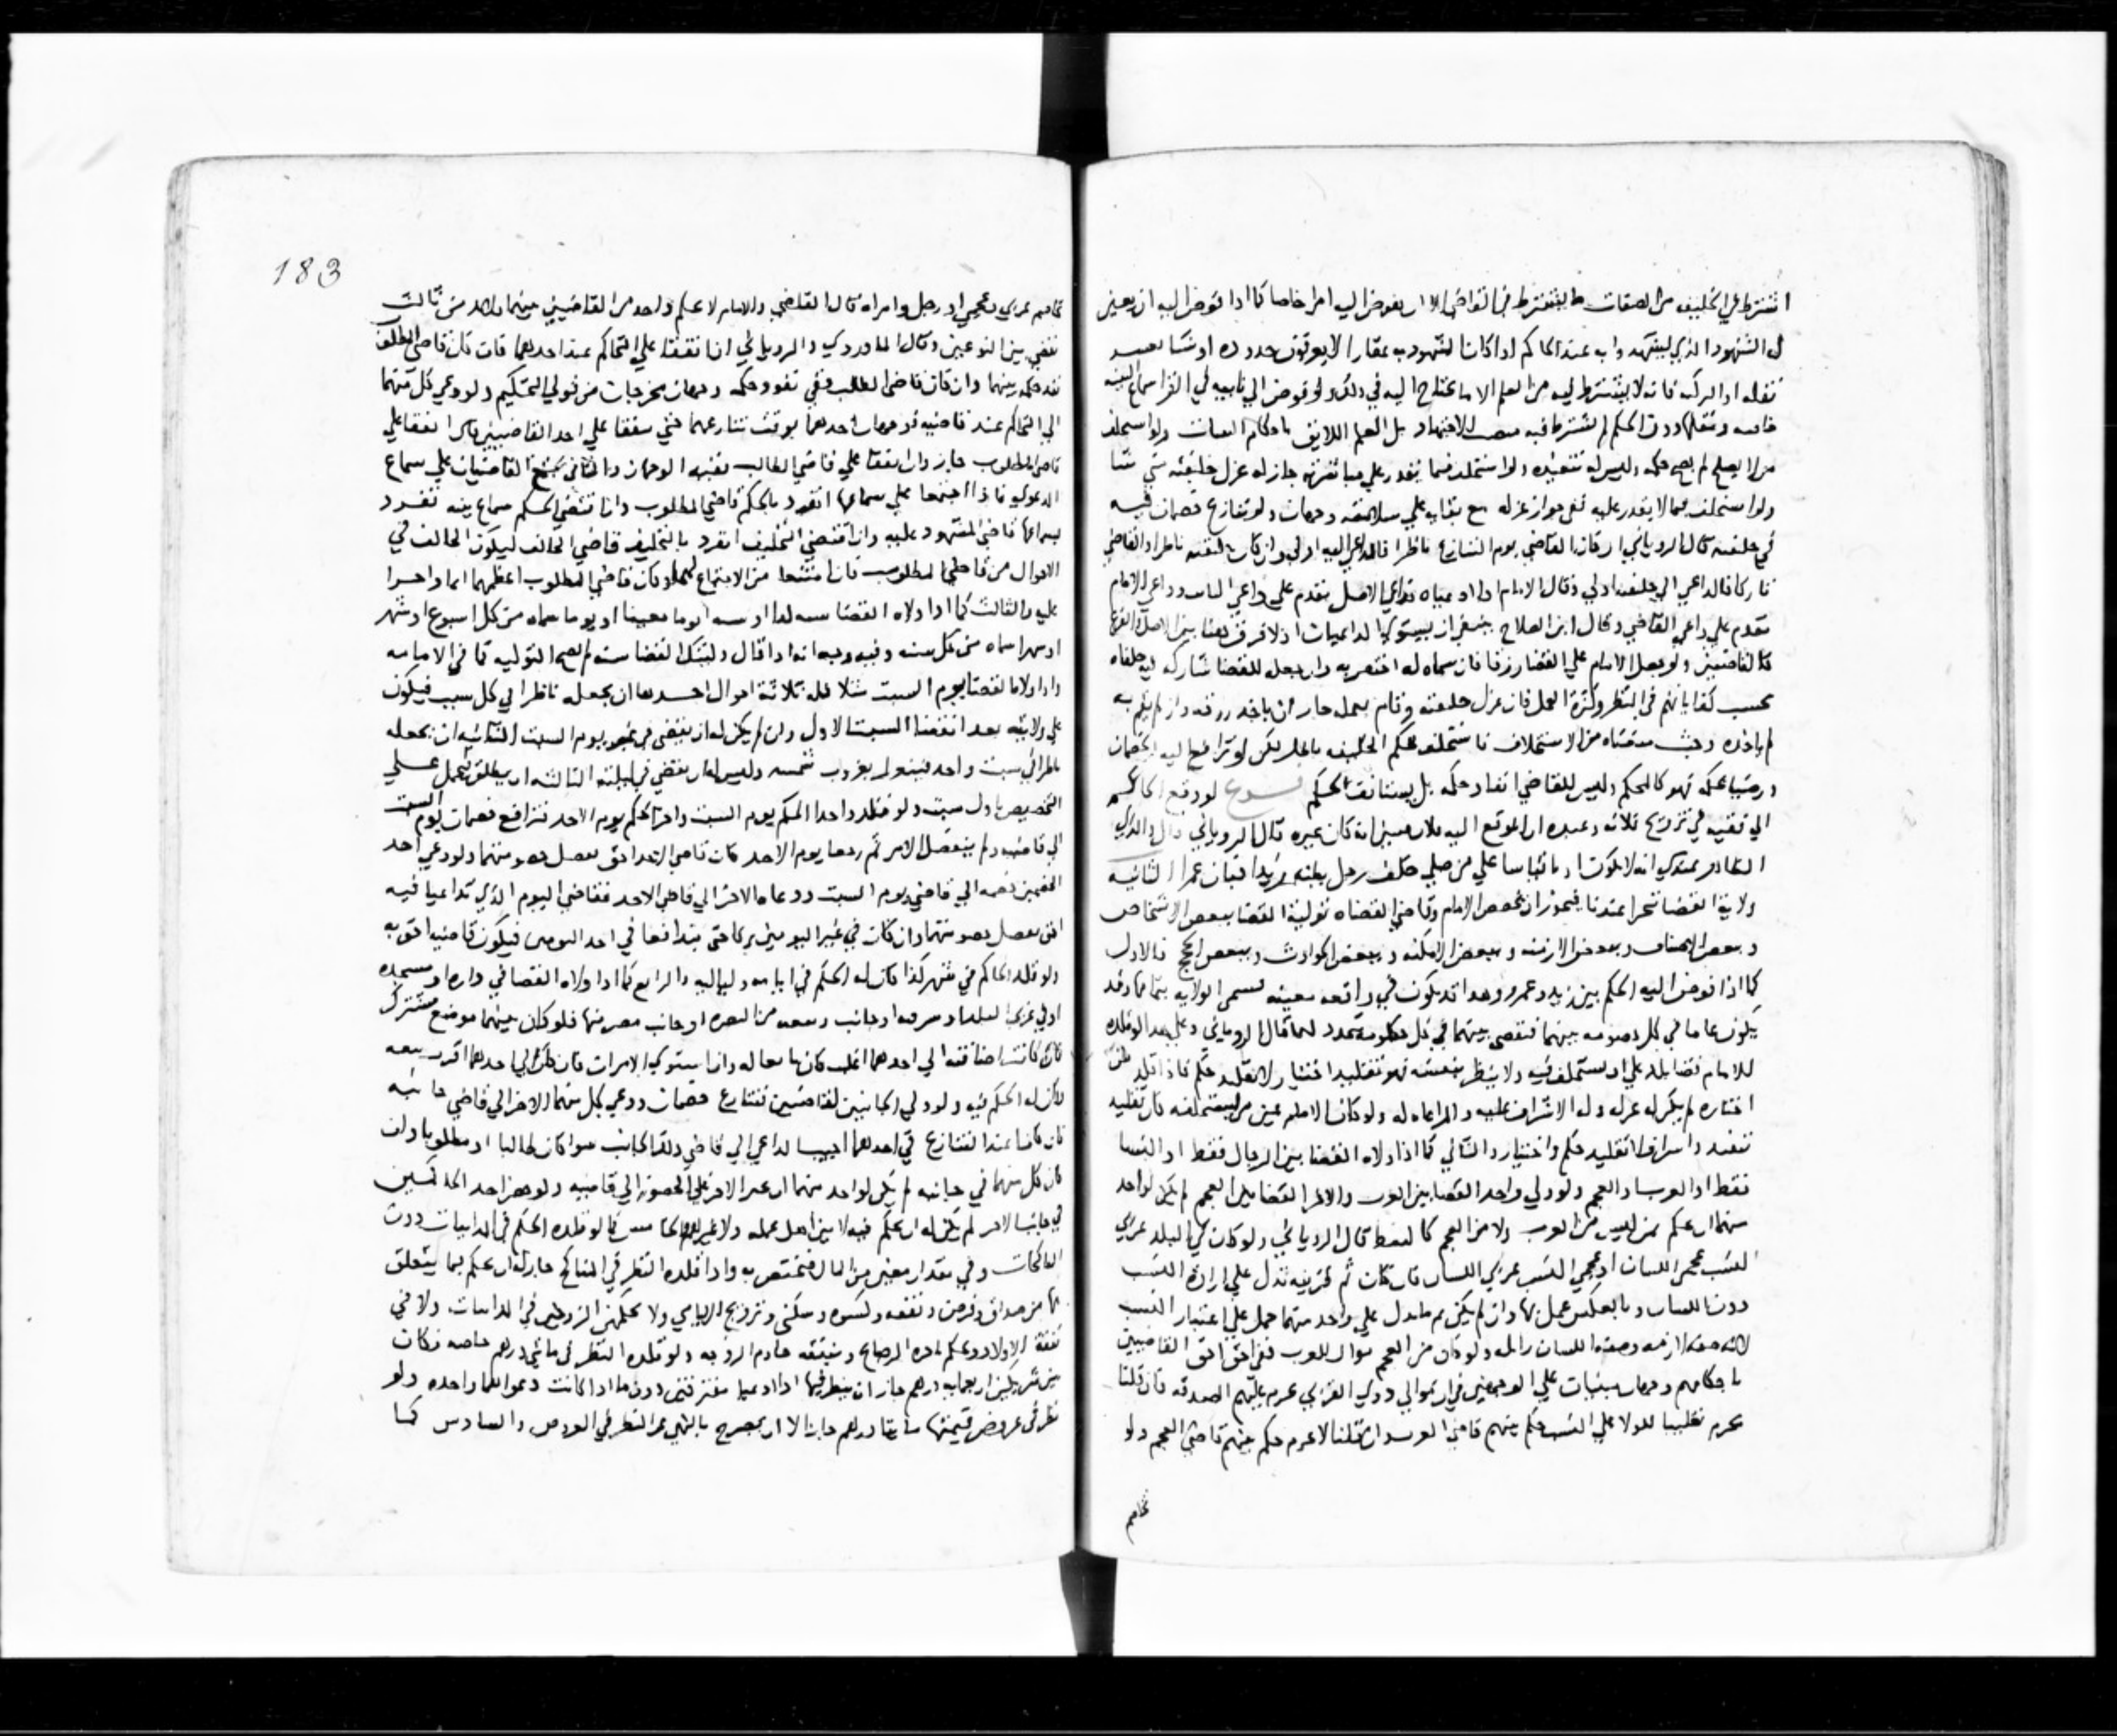 اشترط في الخليفة من الصفات ما يشترط في القاضي الا ان يفوض اليه امرا خاصا كما اذا فوض اليه ان يعين
له الشهود الذي ليشهدوا به عند الحاكم اذا كان الشهود به عقارا لا يعرفون حدوده او شيا
نقله او لا يشترط فيه من العلم الا ما يحتاج اليه في ذلك ولو فوض الي نايبه في القرا سماع البينه
خاصه ونقلها دون الحكم لم يشترط فيه الاجتهاد بل العلم اللايق باحكام البينات ولو استخلف
من لا يصلح لم يصح حكمه وليس له تنفيذه ولو استخلف فيما يقدر علي مباشرته جاز له عزل خليفته متي شا
ولو استخلف فيما لا يقدر عليه ففي جواز عزله مع بقايه علي سلامته وجهان ولو تنازع خصمان فيه
في خليفته قال الروياني ان كان القاضي يوم التنازع ناظرا فالداعي اليه اولي وان كان خليفته ناظرا والقاضي
تاركا فالداعي الي خليفته اولي وقال الامام اذا
يقدم علي داعي القاضي وقال ابن الصلاح ينبغي ان يستوي الداعيان اذ لا فرق هنا بين الاصل والفرع
كالقاضيين ولو جعل الامام علي القضا رزقا فان سماه له اختص به وان جعله للقضا شاركه فيه خلفاه
بحسب كفاياتهم في النظر وكثرة العمل فان عزل خليفته وقام بعمله جاز ان ياخذ رزقه وان لم يقم به
لم ياخذه وحيث منعناه من الاستخلاف فاستخلف فحكم الخليفه باطل لكن لو ترافع اليه الخصمان
ورضيا بحكمه فهو كالمحكم وليس للقاضي انفاذ حكمه بل يستانف الحكم فـــرع لو رفع الحاكم
الي فقيه في تزويج فلانه وعنده ان الموقع اليه فلان فبان انه كان غيره قال الروياني قال والدي
الظاهر عندي انه لا يكون اذنا قياسا علي من صلي خلف رجل يظنه زيدا فبان عمرا الثانيه
ولاية القضا تتجزا عندنا فيجوز ان يخصص الامام وقاضي القضاه تولية القضا ببعض الاشخاص
وبعض الاصناف وبعض الازمنه وببعض الامكنه وببعض الحوادث وببعض الحجج فالاول
كما اذا فوض اليه الحكم بين زيد وعمرو وهذا قد يكون في واقعه معينه فتنتهي الولايه بتمامها وقد
يكون عاما في كل خصومه بينهما فيقضي بينهما في كل حكومة تتجدد لهما قال الروياني وعلي هذا لو قلده
الامام قضا بلد علي ان يستخلف فيه ولا ينظر بنفسه فهو تقليد اختيار لا تقليد حكم فاذا قلد من
اختاره لم يكن له عزله وله الاشراف عليه والمراعاه له ولو كان الامام عين من يستخلفه كان تقليد
تنفيذ واشراف لا تقليد حكم واختيار والثاني كما اذا ولاه القضا بين الرجال فقط او النسا
فقط او العرب او العجم ولو ولي واحدا القضا بين العرب والاخر القضا بين العجم لم يكن لواحد
منهما ان يحكم بمن ليس من العرب ولا من العجم كالنبط قال الروياني ولو كان في البلد عربي
النسب عجمي اللسان او عجمي النسب عربي اللسان فان كان ثم قرينه تدل علي ارادة النسب
دون اللسان او بالعكس عمل بها وان لم يكن ثم ما يدل علي واحد منهما حمل علي اعتبار النسب
لانه صفه لازمه وصفة اللسان زايله ولو كان من العجم موال للعرب ففي احق القاضيين
باحكامهم وجهان مبنيان علي الوجهين في ان موالي ذوي القربي يحرم عليهم الصدقه فان قلنا
يحرم تغليبا للولا علي النسب حكم بينهم قاضي العرب وان قلنا لا يحرم حكم بينهم قاضي العجم ولو
تخاصم
183
تخاصم عربي وعجمي او رجل وامراه قال القاضي والامام لا يحكم واحد من القاضيين بينهما ولابد من ثالث
يقضي بين النوعين وقال الماوردي والروياني ان اتفقا علي التحاكم عند احدهما فان كان قاضي المطلوب
نفذ حكمه بينهما وان كان قاضي الطالب ففي نفوذ حكمه وجهان مخرجان من قولي التحكيم ولو دعي كل منهما
الي التحاكم عند قاضيه فوجهان احدهما يوقف تنازعهما حتي يتفقا علي احد القاضيين فان اتفقا علي
قاضي المطلوب جاز وان اتفقا علي قاضي الطالب ففيه الوجهان والثاني يجتمع القاضيان علي سماع
الدعوي فاذا اجتمعا علي سماعها انفرد بالحكم قاضي المطلوب وان اقتضي الحكم سماع بينه تفرد
بسماعها قاضي المشهود عليه وان اقتضي التحليف انفرد بالتحليف قاضي الحالف ليكون الحالف في
الاحوال من قاضي المطلوب فان امتنعا من الاجتماع وكان قاضي المطلوب اعظمهما اثما واحرا
عليه والثالث كما اذا ولاه القضا سنه او يوما معينا او يوما سماه من كل اسبوع او شهر
او شهرا سماه من كل سنه وفيه وجه انه اذا قال وليتك القضا سنه لم يصح التوليه كما في الامامه
واذا ولاه القضا يوم السبت مثلا فله ثلاثة احوال احدها ان يجعله ناظرا في كل سبت فيكون
علي ولايته بعد انقضا السبت الاول وان لم يكن له ان يقضي في غير يوم السبت الثانيه ان يجعله
ناظرا في سبت واحد فينعزل بغروب شمسه وليس له ان يقضي في ليلته الثالثه ان يطلق فيحمل علي
التخصيص باول سبت ولو قلد واحدا الحكم يوم السبت واخر الحكم يوم الاحد فترافع خصمان يوم السبت
الي قاضيه ولم ينفصل الامر ثم رجعا يوم الاحد كان قاضي الاحد احق بفصل خصومتهما ولو دعي احد
الخصمين خصمه الي قاضي يوم السبت ودعاه الاخر الي قاضي الاحد فقاضي اليوم الذي تداعيا فيه
احق بفصل خصومتهما وان كان في غير اليومين تركا حتي يتدافعا في احد اليومين فيكون قاضيه احق به
ولو قلد الحاكم في شهر كذا كان له الحكم في ايامه ولياليه والرابع كما اذا ولاه القضا في داره او مسجده
او في غربي البلد او شرقه او جانب بعينه من البصره او جانب مصر منها فلو كان بينهما موضع مشترك
فان كانت اضافته الي احدهما اغلب كان مضافا له وان استوي الامران فان كان الي احدهما اقرب
كان له الحكم فيه ولو ولي الجانبين لقاضيين فتنازع خصمان ودعي كل منهما الاخر الي قاضي جانبه
فان كانا عند التنازع في احدهما اجيب الداعي الي قاضي ذلك الجانب سوا كان طالبا او مطلوبا وان
كان كل منهما في جانبه لم يكن لواحد منهما ان يجبر الاخر علي الحضور الي قاضيه ولو حضر احد الحاكمين
في جانب الاخر لم يكن له ان يحكم فيه لا بين اهل عمله ولا غيرهم الخامس كما لو قلده الحكم في المداينات دون
المناكحات وفي مقدار معين من المال فيختص به واذا قلده النظر في المناكح جاز له ان يحكم بما يتعلق
بها من صداق وفرض ونفقه وكسوه وسكني وتزويج الايامي ولا يحكم بين الزوجين في المداينات ولا في
نفقة الاولاد ويحكم باجره الرضاع وبنفقه خادم الزوجه ولو قلده النظر في مايتي درهم خاصه فكان
بين شريكين اربعمايه درهم جاز ان ينظر فيها اذا ادعيا مفترقين دون ما اذا كانت دعواهما واحده ولو
نظر في عروض قيمتها مايتا درهم جاز الا ان يصرح بالنهي عن النظر في العروض والسادس كما